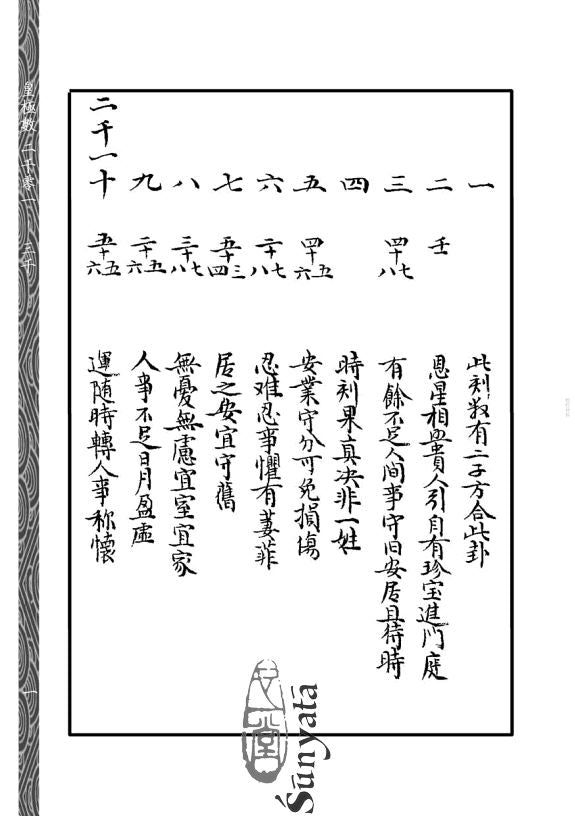 一 此刻数有二子方合此卦
二 壬 恩星相照貴人引自有珍宝進门庭
三 四十七八 有餘不足人间事守旧安居且待時
四 時刻果真决非一姓
五 四十五六 安業守分可免損傷
六 二十七八 忍难忍事懼有萋菲
七 五十三四 居之安宜守舊
八 三十七八 無憂無慮宜室宜家
九 二十五六 人事不足日月盈虚
二千一十 五十五六 運随時轉人事称懷
皇極數 二千零一 三千
一
Śūnyatā